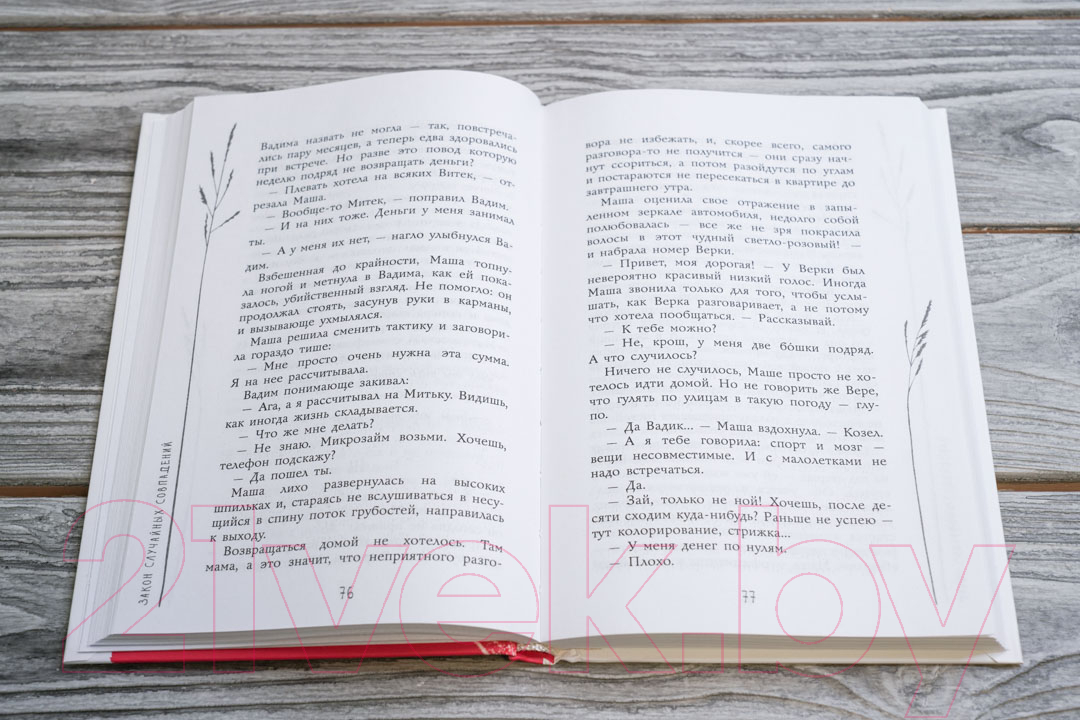 Вадима назвать не могла — так, повстреча-
лись пару месяцев, а теперь едва здоровались
при встрече. Но разве это повод которую
неделю подряд не возвращать деньги?
— Плевать хотела на всяких Витек, — от-
резала Маша.
— Вообще-то Митек, — поправил Вадим.
— И на них тоже. Деньги у меня занимал
ты.
— А у меня их нет, — нагло улыбнулся Ва-
дим.
Взбешенная до крайности, Маша топну-
ла ногой и метнула в Вадима, как ей пока-
залось, убийственный взгляд. Не помогло: он
продолжал стоять, засунув руки в карманы,
и вызывающе ухмылялся.
Маша решила сменить тактику и заговори-
ла гораздо тише:
— Мне просто очень нужна эта сумма.
Я на нее рассчитывала.
Вадим понимающе закивал:
— Ага, а я рассчитывал на Митьку. Видишь,
как иногда жизнь складывается.
— Что же мне делать?
— Не знаю. Микрозайм возьми. Хочешь,
телефон подскажу?
— Да пошел ты.
Маша лихо развернулась на высоких
шпильках и, стараясь не вслушиваться в несу-
щийся в спину поток грубостей, направилась
к выходу.
Возвращаться домой не хотелось. Там
мама, а это значит, что неприятного разго-
76
Закон случайных совпадений
вора не избежать, и, скорее всего, самого
разговора-то не получится — они сразу нач-
нут ссориться, а потом разойдутся по углам
и постараются не пересекаться в квартире до
завтрашнего утра.
Маша оценила свое отражение в запы-
ленном зеркале автомобиля, недолго собой
полюбовалась — все же не зря покрасила
волосы в этот чудный светло-розовый! —
и набрала номер Верки.
— Привет, моя дорогая! — У Верки был
невероятно красивый низкий голос. Иногда
Маша звонила только для того, чтобы услы-
шать, как Верка разговаривает, а не потому
что хотела пообщаться. — Рассказывай.
— К тебе можно?
— Не, крош, у меня две бо́шки подряд.
А что случилось?
Ничего не случилось, Маше просто не хо-
телось идти домой. Но не говорить же Вере,
что гулять по улицам в такую погоду — глу-
по.
— Да Вадик... — Маша вздохнула. — Козел.
— А я тебе говорила: спорт и мозг —
вещи несовместимые. И с малолетками не
надо встречаться.
— Да.
— Зай, только не ной! Хочешь, после де-
сяти сходим куда-нибудь? Раньше не успею —
тут колорирование, стрижка...
— У меня денег по нулям.
— Плохо.
77
21vek.by